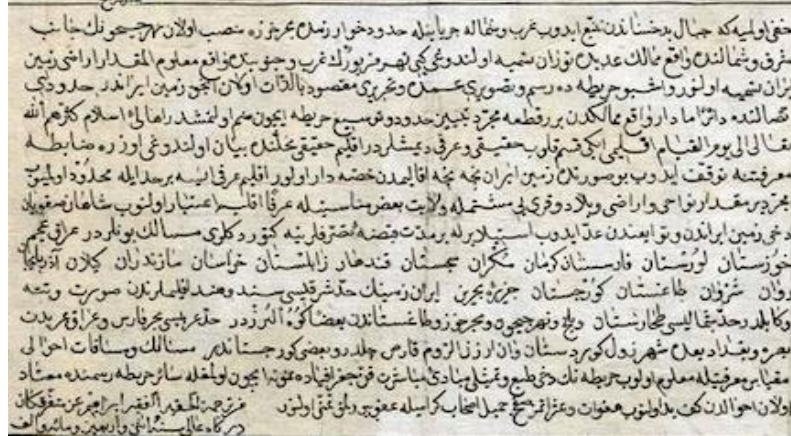 خفی اولمیه که جبال بدخشاندن تتبع ایدوب غرب و شماله جریانله حدود خوارزمدن بحر خزره منصب اولان نهر جیحونك جانب
شرق و شمالنده واقع ممالك عدیده توران تسمیه اولندوغی کبی نهر مزبورك غرب و جنوبنده واقع معلوم المقدار اراضی زمین
ایران تسمیه اولنور و اشبو خریطه ده رسم و تصویری عمده و تحریری مقصود بالذات اولان انجق زمین ایراندر حدودی
اتصالنده دائرا مادار واقع ممالکدن برر قطعه مجرد تبیین حدود و توسیع خریطه ایچون ضم اولنمشدر اهالئ اسلام کثرهم الله
تعالی الی یوم القیام اقلیمی ایکی قسم قلوب حقیقی و عرفی دیمشلر در اقلیم حقیقی محلنده بیان اولندوغی اوزره ضابطه
معرفتنه توقف ایدوب بو صورتده زمین ایران نچه نچه اقالیمدن حصه دار اولور اقلیم عرفی ایسه بر حد ایله محدود اولیوب
مجرد بر مقدار نواحی و اراضی و بلاد و قری یی مشتمله ولایت بعض مناسبتله عرفا اقلیم اعتبار اولنوب شاهان صفویان
دخی زمین ایراندن و توابعندن عد ایدوب استیلا برله بر مدت قبضه تصرفلرینه کتوردکلری مسالك بونلردر عراق عجم
خوزستان لورستان فارسستان کرمان مکران سجستان قندهار زابلستان خراسان مازندران کیلان آذربایجان
روان شروان طاغستان کورجستان جزیره بحرین ایران زمینك حد شرقیسی سند و هند اقلیملرندن صورت و تته
و کابلدر حد شمالیسی طخارستان و بلخ و نهر جیحون و بحر خزر و طاغستاندن بعضا کوه البرزدر حد غربیسی بحر فارس و عراق عربدن
بصره و بغداد بعده شهرزول کوردستان وان ارزن الروم قارص چلدر و بعضی کورجستاندر مسالك و مسافات احوالی
مقیاس معرفتیله معلوم اولوب خریطه نك دخی طبع و تمثیلی مبادئ مباشرت ایچون اولمغله سائر خریطه رسمنده معتاد
اولان احوالدن اولنوب هفوات و عثراتمز جمیل اصحاب کرامیله عفو تمنی اولنور
ابراهیم
درکاه عالی سنه اثنی و اربعین و مائه و الف